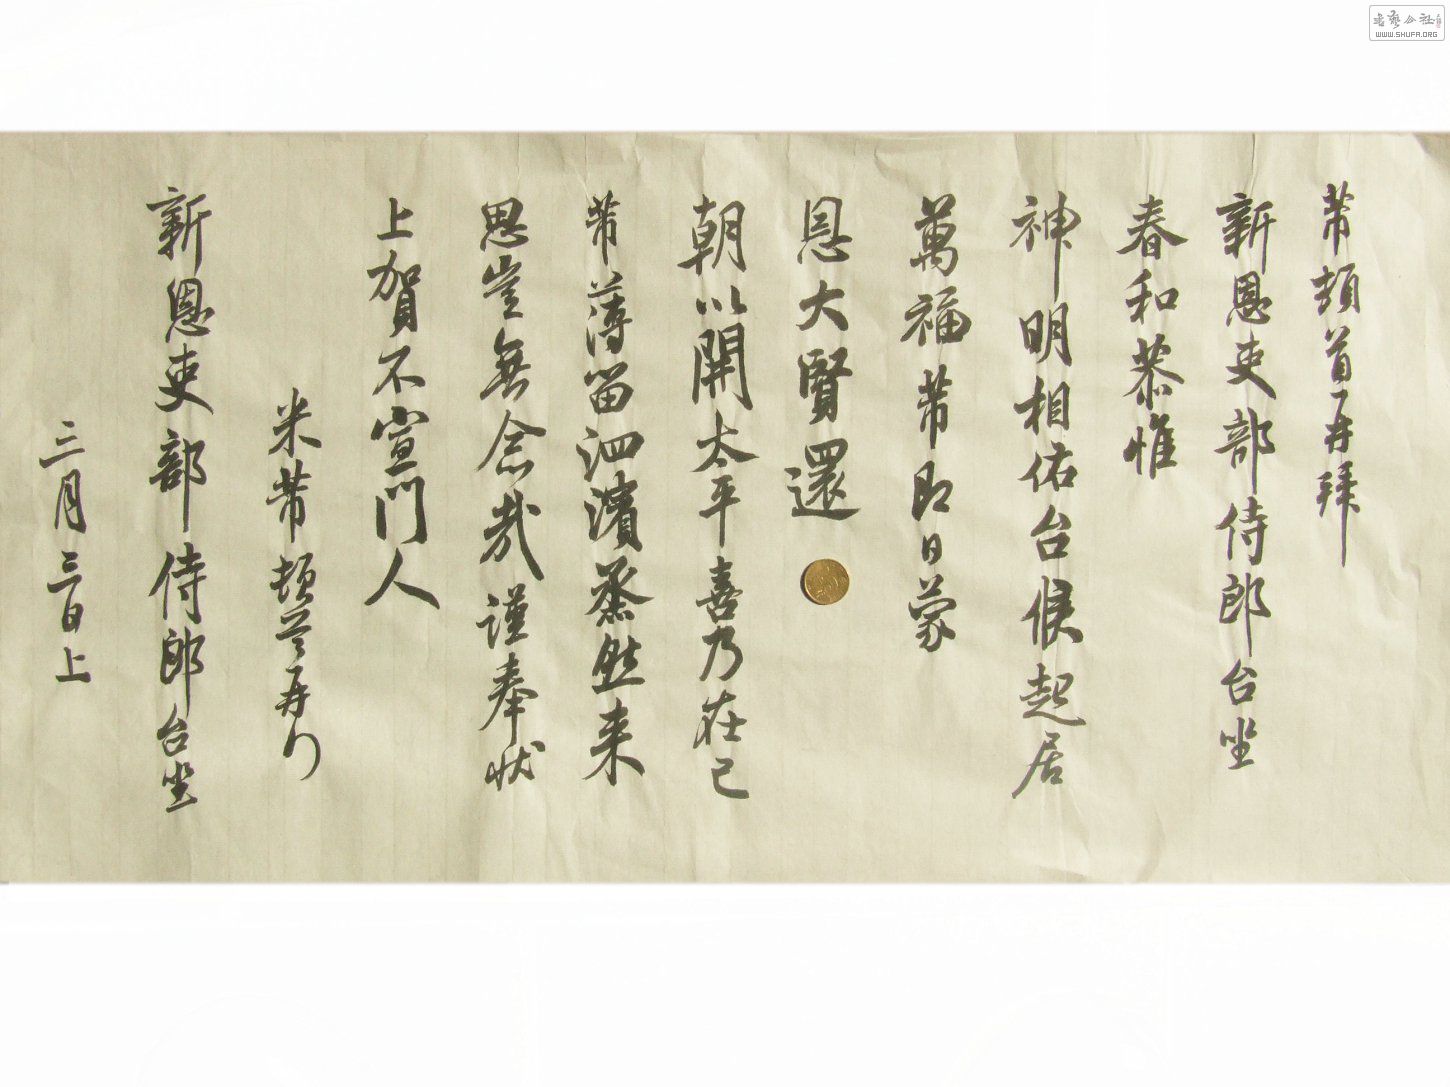 芾頓首再拜
新恩吏部侍郎台坐
春和恭惟
神明相佑台候起居
萬福芾即日蒙
恩大賢還
朝以開太平喜乃在己
芾薄留泗濱蒸然来
思豈無念哉謹奉状
上賀不宣門人
米芾頓首再拜
新恩吏部侍郎台坐
三月三日上
書藝公社
WWW.SHUFA.ORG